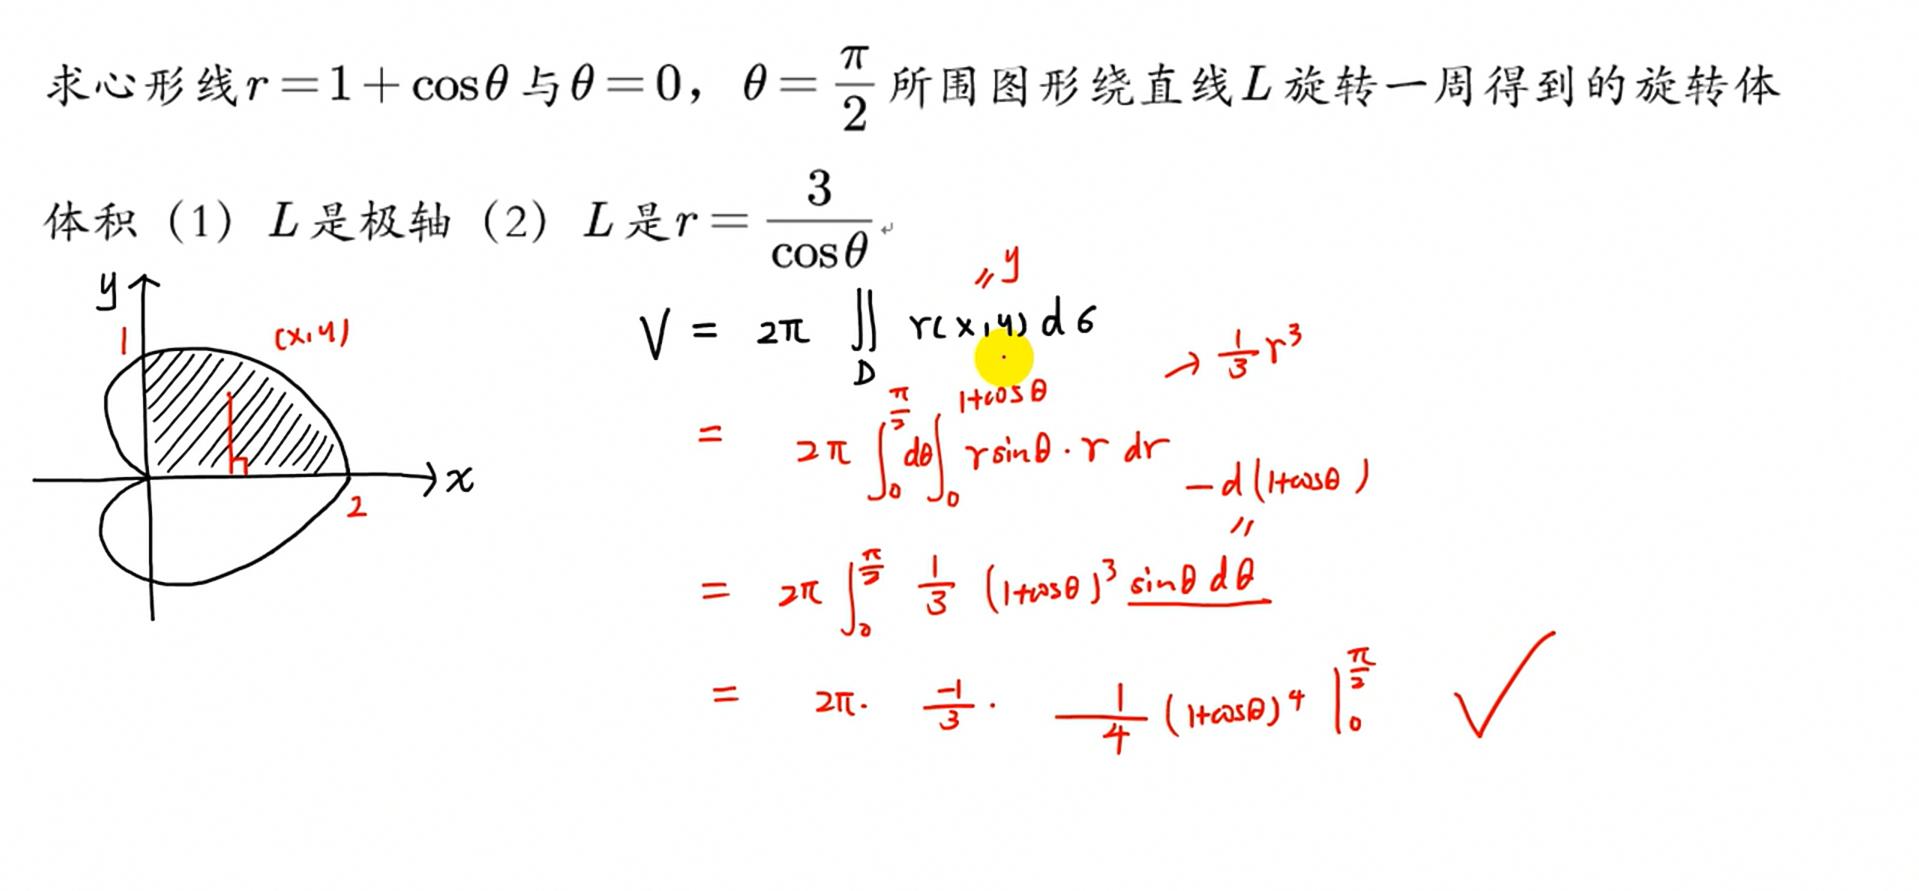 求心形线r=1+cosθ与θ=0，θ=π/2所围图形绕直线L旋转一周得到的旋转体
体积（1）L是极轴（2）L是r=3/cosθ
y
1
(x,y)
x
2
〃y
V = 2π ∬_D r(x,y) dσ
→ 1/3 r³
= 2π ∫_0^{π/2} dθ ∫_0^{1+cosθ} r sinθ · r dr
-d(1+cosθ)
〃
= 2π ∫_0^{π/2} 1/3 (1+cosθ)³ sinθ dθ
= 2π · -1/3 · 1/4 (1+cosθ)⁴ |_0^{π/2} ✓